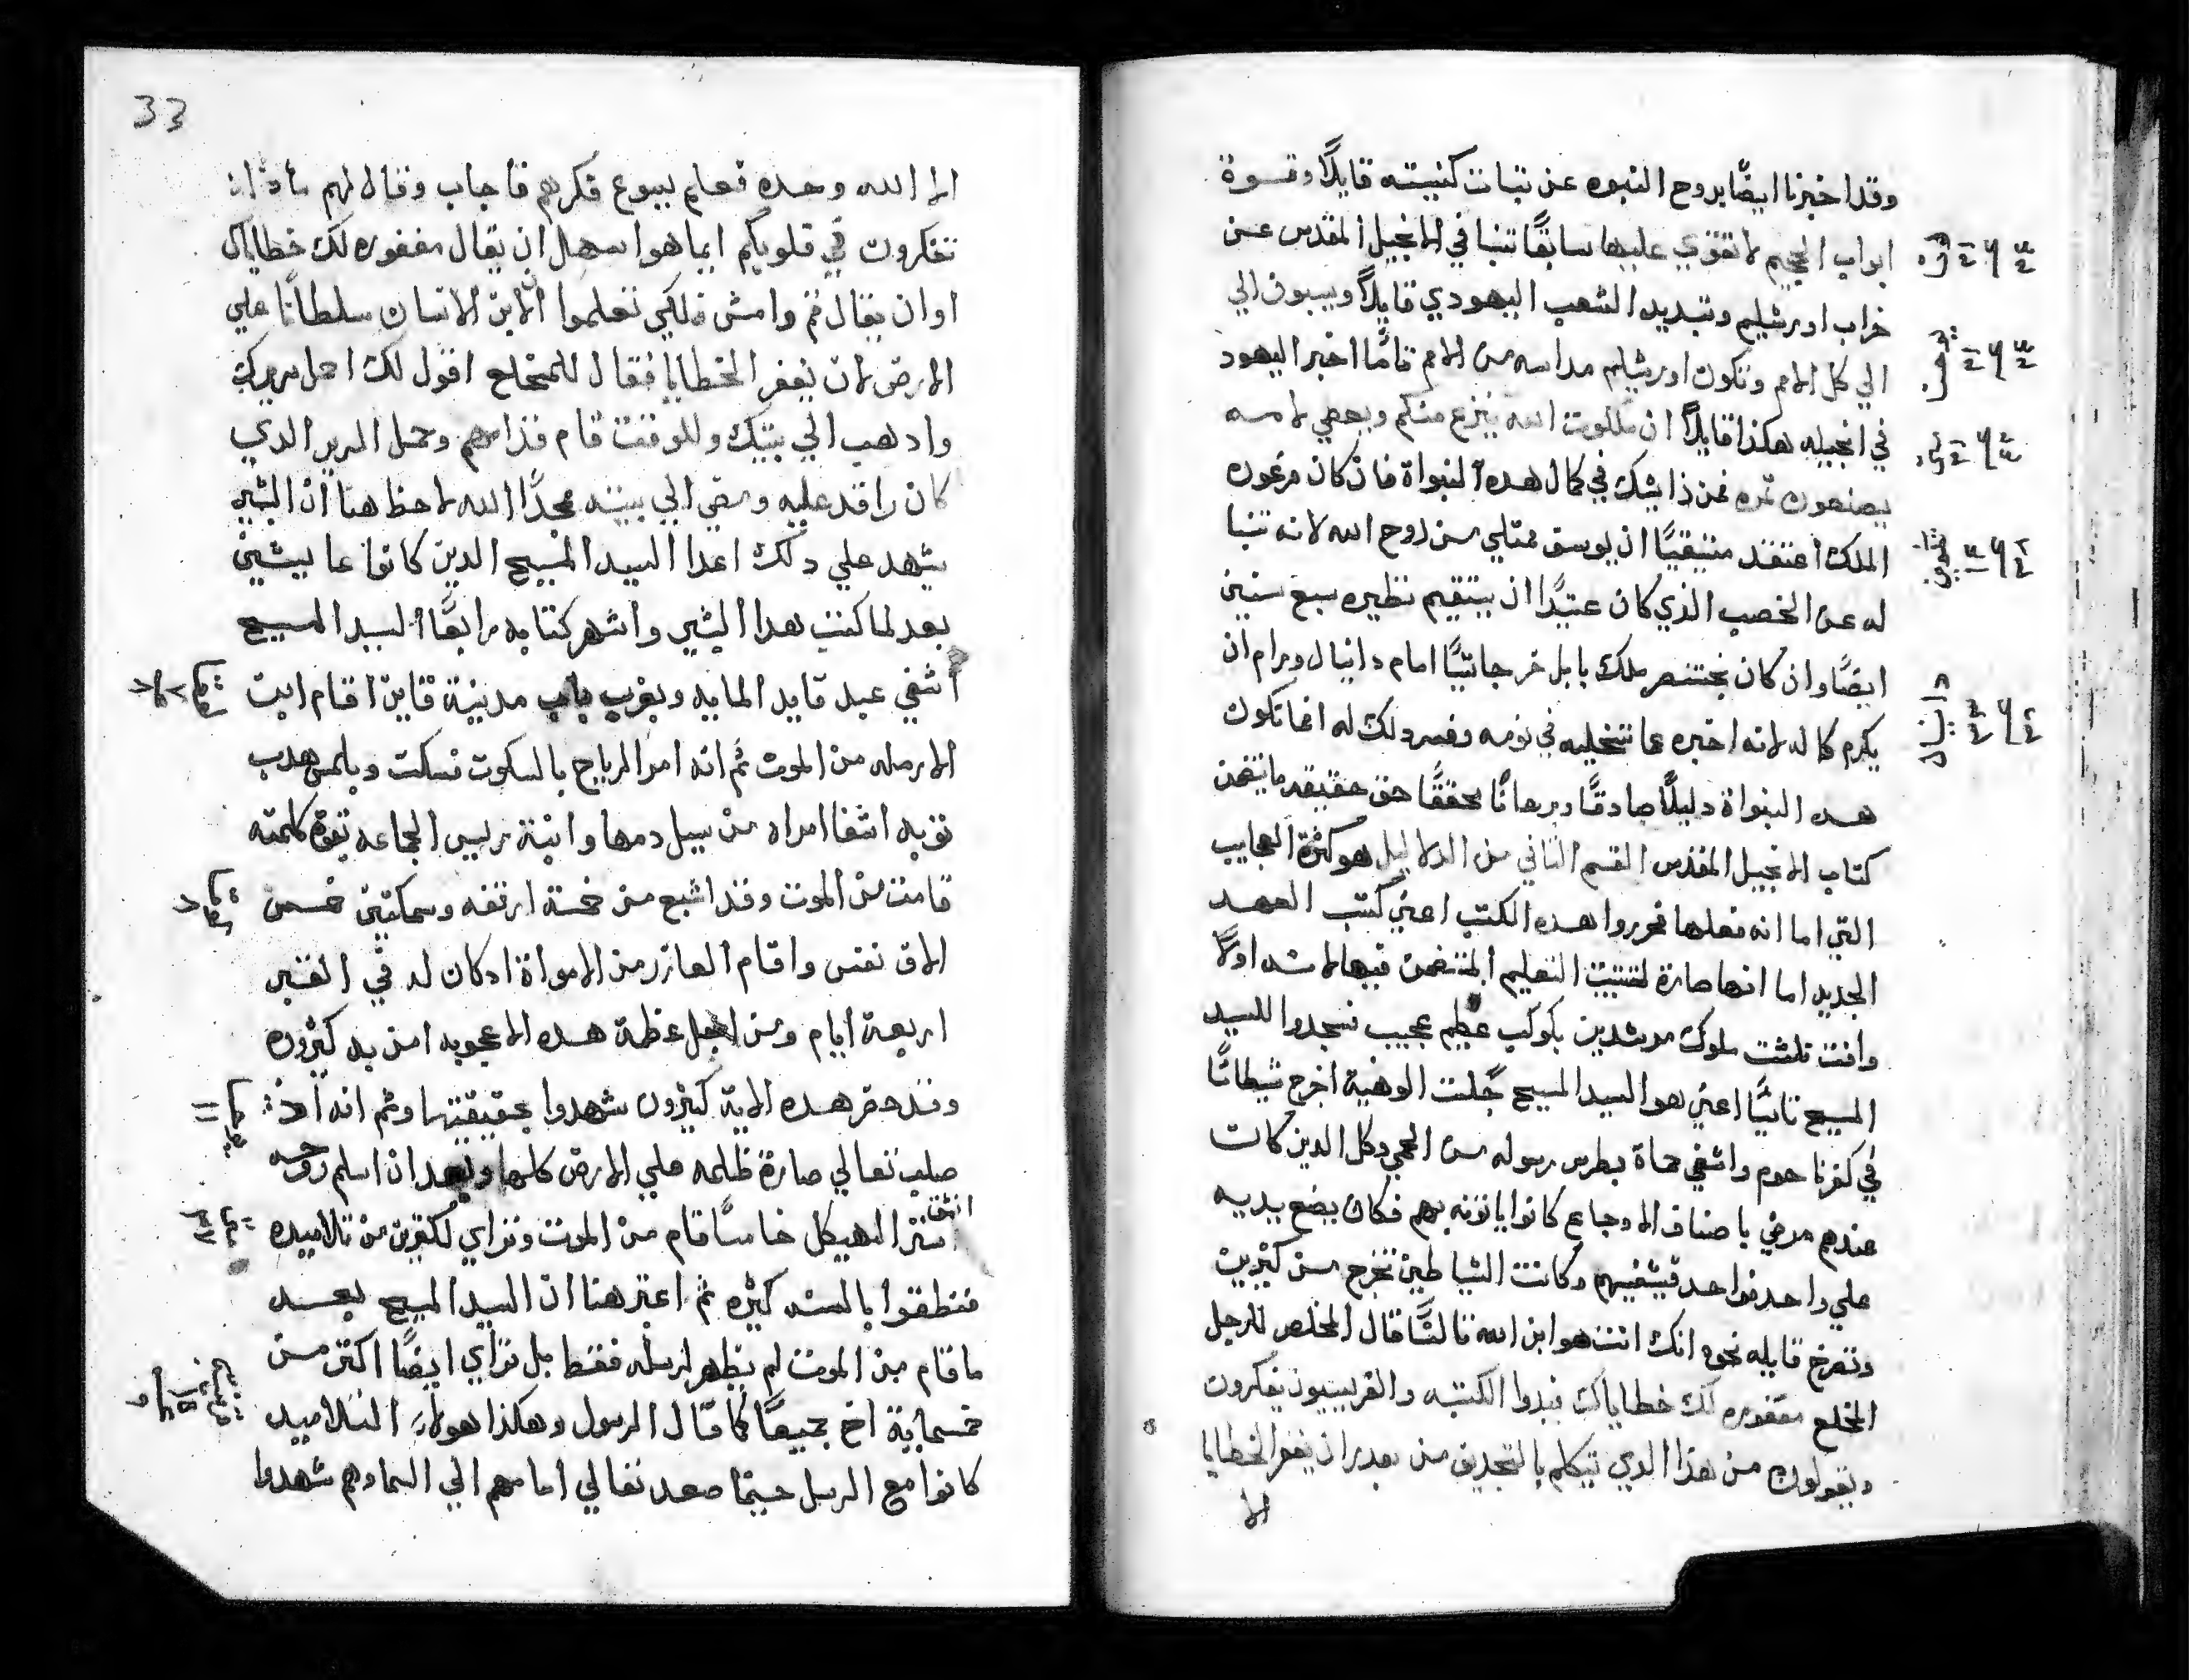 وقد اخبرنا ايضًا بروح النبوه عن تبات كنيسته قايلاً وقوة
ابواب الجحيم لا تقوي عليها سابعًا تنبا في الانجيل المقدس عن
خراب اورشليم وتبديد الشعب اليهودي قايلاً ويسبون الي
الي كل الامم وتكون اورشليم مداسه من الامم تامنًا اخبر اليهود
في انجيله هكذا قايلاً ان ملكوت الله ينزع منكم ويعطي لامه
يصنعون تمره فمن ذا يشك في كمال هده النبواة فان كان فرعون
الملك اعتقد متيقنًا ان يوسق ممتلي من روح الله لانه تنبا
له عن الخصب الذي كان عتيدًا ان يتقيم نظيره سبع سنين
ايضًا وان كان بختنصر ملك بابل خر جاتيًا امام دانيال ورام ان
يكرم كاله لانه اخبره عا تتخليه في نومه وفسر دلك له افما تكون
هده النبواة دليلاً صادقًا وبرهانًا محققًا حق حقيقه ما يتضمن
كتاب الانجيل المقدس القسم التاني من الدلاليل هو كثرة العجايب
التي اما انه فعلها محرروا هده الكتب اعني كتب العهد
الجديد اما انها صارة لتتبيت التعليم المتضمن فيها لانه اولاً
وافت تلثت ملوك مرشدين بكوكب عظيم عجيب فسجدوا للسيد
المسيح تانيًا اعني هو السيد المسيح جلت الوهية اخرج شيطانًا
في كفرناحوم واشفي حماة بطرس رسوله من الحمي وكل الدين كانت
عندهم مرضي باصناف الاوجاع كانوا ياتونه بهم فكان يضع يديه
علي واحد فواحد فيشفيهم وكانت الشياطين تخرج من كثيرين
وتصرخ قايله نحوه انك انت هو ابن الله تالتًا قال المخلص للرجل
المخلع مغفوره لك خطاياك فبدوا الكتبه والفريسيون يفكرون
ويقولون من هذا الدي يتكلم بالتجديف من يقدر ان يغفر الخطايا
الا
33
الا الله وحده فعلم يسوع فكرهم فاجاب وقال لهم مادا
تفكرون في قلوبكم ايما هو اسهل ان يقال مغفوره لك خطاياك
او ان يقال قم وامش فلكي تعلموا ان لابن الانسان سلطانًا علي
الارض لان يغفر الخطايا فقال للمخلع اقول لك احمل سريرك
وادهب الي بيتك وللوقت قام قدامهم وحمل السرير الدي
كان راقد عليه ومضي الي بيته ممجدًا الله لاحظ هنا ان البشير
يشهد علي دلك اعدا السيد المسيح الدين كانوا عايشين
بعد لما كتب هدا البشير واشهر كتابه رابعًا السيد المسيح
اشفي عبد قايد المايه وبقرب باب مدينة قاين اقام ابن
الارمله من الموت ثم انه امر الرياح بالسكوت فسكت وبلمس هدب
توبه اشفا امراه من سيل دمها وابنة ريس الجماعه بقوة كلمته
قامت من الموت وقد اشبع من خمسة ارغفه وسمكتين خمس
الاف نفس واقام العازر من الامواة اد كان له في القبر
اربعة ايام ومن اجل عظمة هده الاعجوبه امن به كثيرون
وقد حقر هده الاية كثيرون شهدوا بحقيقتها وثم انه اد
صلب تعالي صارة ظلمه علي الارض كلها وبعد ان اسلم روحه
انشق
ستر الهيكل خامسًا قام من الموت وتراي لكثيرين من تلاميده
فنطقوا بالسنه كثيره ثم اعتبر هنا ان السيد المسيح بعد
ما قام من الموت لم يظهر لرسله فقط بل تراي ايضًا اكتر من
خمسماية اخ جميعًا كما قال الرسول وهكذا هولاء التلاميد
كانوا مع الرسل حيتما صعد تعالي امامهم الي السما وهم شهدوا